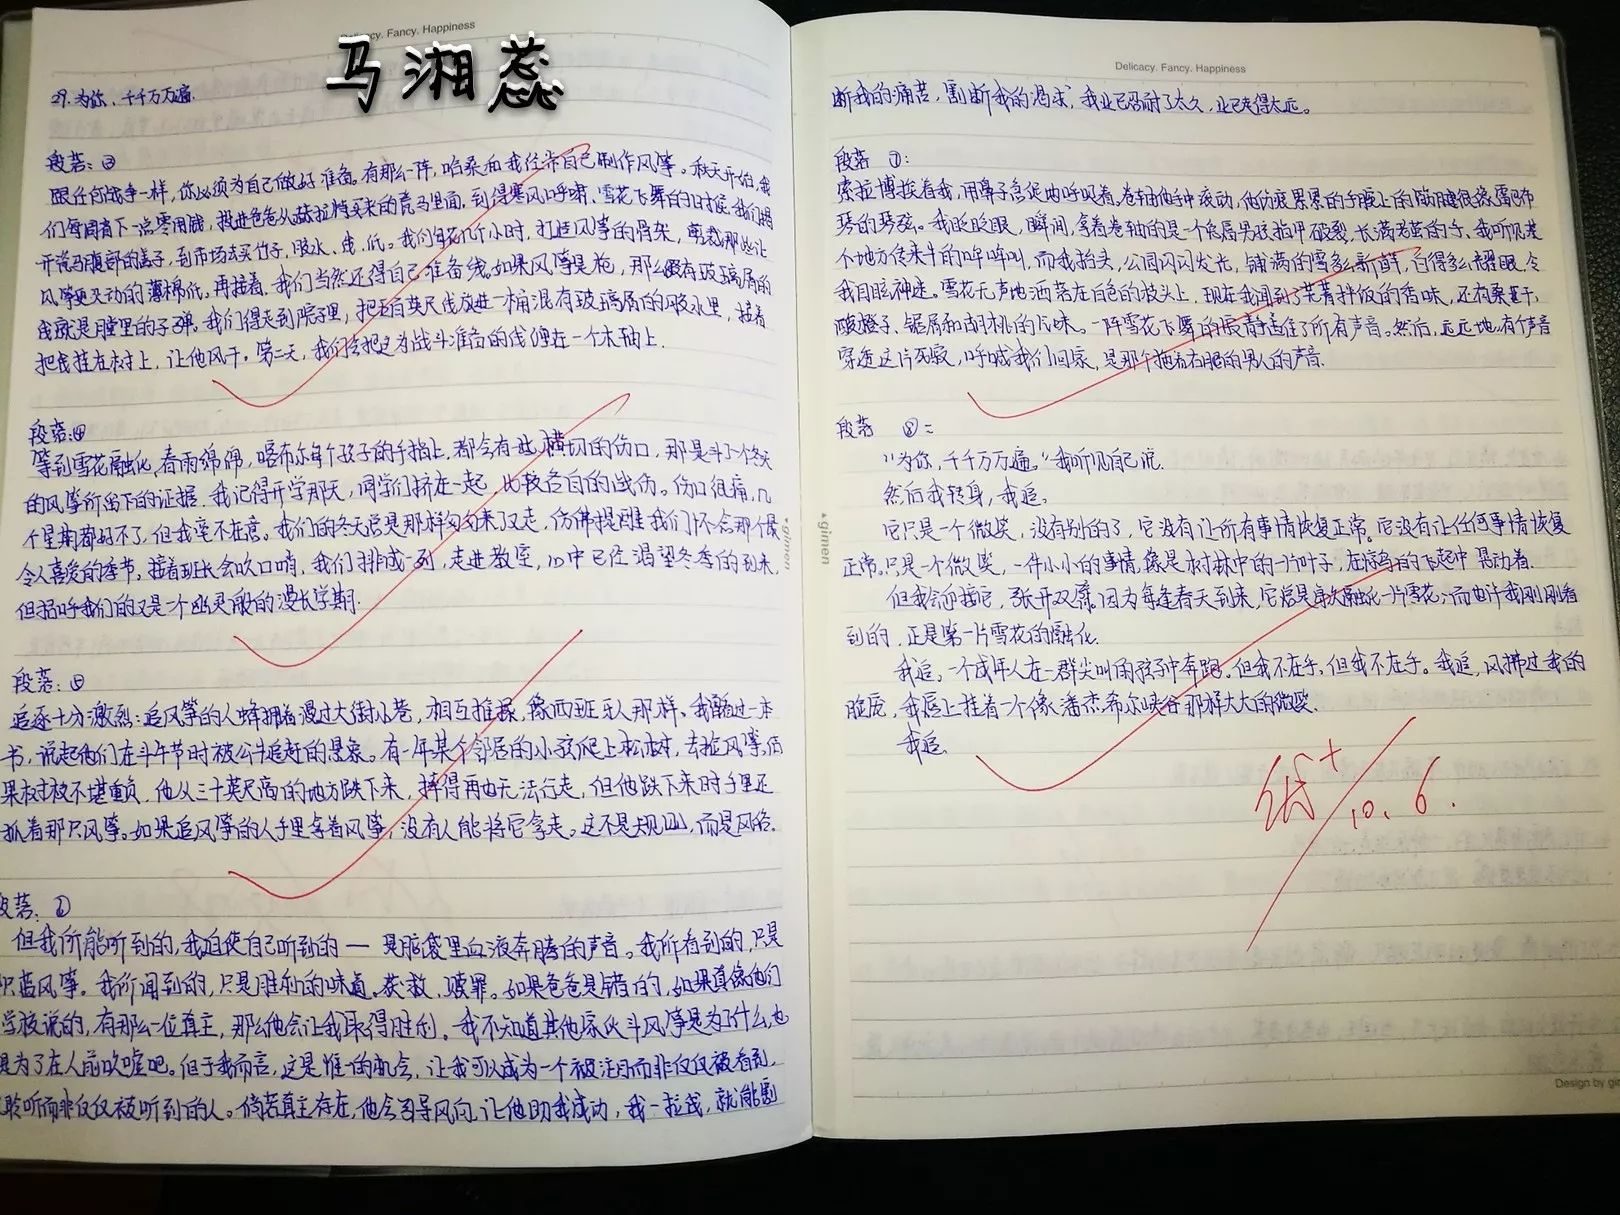 Delicacy. Fancy. Happiness
马湘蕊
29.为你、千千万万遍.
段落：③
跟任何战争一样，你必须为自己做好准备。有那么一阵，哈桑和我经常自己制作风筝。秋天开始，我
们每周省下一点零用钱，投进爸爸从赫拉特买来的瓷马里面，到得寒风呼啸、雪花飞舞的时候，我们揭
开瓷马腹部的盖子，到市场去买竹子、胶水、线、纸。我们每天花几个小时，打造风筝的骨架，剪裁那些让
风筝更灵动的薄棉纸。再接着，我们当然还得自己准备线。如果风筝是枪，那么缀有玻璃屑的
线就是膛里的子弹。我们得走到院子里，把五百英尺线放进一桶混有玻璃屑的胶水里，接着
把线挂在树上，让他风干。第二天，我们会把这为战斗准备的线缠在一个木轴上.
段落：④
等到雪花融化，春雨绵绵，喀布尔每个孩子的手指上，都会有一些横切的伤口，那是斗了一个冬天
的风筝所留下的证据。我记得开学那天，同学们挤在一起，比较各自的战伤。伤口很痛，几
个星期都好不了，但我毫不在意。我们的冬天总是那样匆匆来了又走，伤疤提醒我们怀念那个最
令人喜爱的季节。接着班长会吹口哨，我们排成一列，走进教室，心中已经渴望冬季的到来，
但招呼我们的又是一个幽灵般的漫长学期.
段落：⑤
追逐十分激烈：追风筝的人蜂拥着漫过大街小巷，相互推搡，像西班牙人那样。我看过一本
书，说起他们在斗牛节时被公牛追赶的景象。有一年某个邻居的小孩爬上松树，去捡风筝，结
果树枝不堪重负，他从三十英尺高的地方跌下来，摔得再也无法行走，但他跌下来时手里还
抓着那只风筝。如果追风筝的人手里拿着风筝，没有人能将它拿走。这不是规则，而是风俗.
段落：⑥
但我所能听到的，我迫使自己听到的——是脑袋里血液奔腾的声音。我所看到的，只是
只蓝风筝。我所闻到的，只是胜利的味道。获救，赎罪。如果爸爸是错的，如果真像他们
学校说的，有那么一位真主，那么他会让我取得胜利。我不知道其他家伙斗风筝是为了什么，也
是为了在人前吹嘘吧。但于我而言，这是唯一的机会，让我可以成为一个被注目而非仅仅被看到，
聆听而非仅仅被听到的人。倘若真主存在，他会引导风向，让他助我成功，我一拉线，就能割
gimen
Delicacy. Fancy. Happiness
断我的痛苦，割断我的渴求，我业已忍耐了太久，业已走得太远。
段落 ⑦：
索拉博挨着我，用鼻子急促地呼吸着。卷轴他手中滚动，他伤痕累累的手腕上的筋腱很像雷巴布
琴的琴弦。我眨眨眼，瞬间，拿着卷轴的是一个兔唇男孩指甲破裂，长满老茧的手。我听见某
个地方传来牛的哞哞叫，而我抬头，公园闪闪发光，铺满的雪多么新鲜，白得多么耀眼，令
我目眩神迷。雪花无声地洒落在白色的枝头上，现在我闻到了芜菁拌饭的香味，还有桑葚干，
酸橙子、锯屑和胡桃的气味。一阵雪花飞舞的寂静遮住了所有声音。然后，远远地，有个声音
穿透这片死寂，呼喊我们回家，是那个拖着右腿的男人的声音.
段落 ⑧：
“为你，千千万万遍。”我听见自己说.
然后我转身，我追。
它只是一个微笑，没有别的了，它没有让所有事情恢复正常。它没有让任何事情恢复
正常。只是一个微笑，一件小小的事情，像是树林中的一片叶子，在惊鸟的飞起中晃动着.
但我会迎接它，张开双臂，因为每逢春天到来，它总是每次融化一片雪花；而也许我刚刚看
到的，正是第一片雪花的融化.
我追，一个成年人在一群尖叫的孩子中奔跑。但我不在乎，但我不在乎。我追，风拂过我的
脸庞，我唇上挂着一个像潘杰希尔峡谷那样大大的微笑.
我追.
优+
10.6.
Design by gi